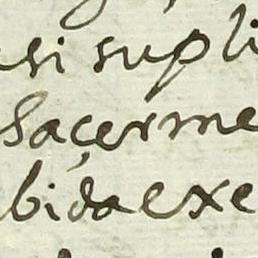 si supli
haçerme
bida exe